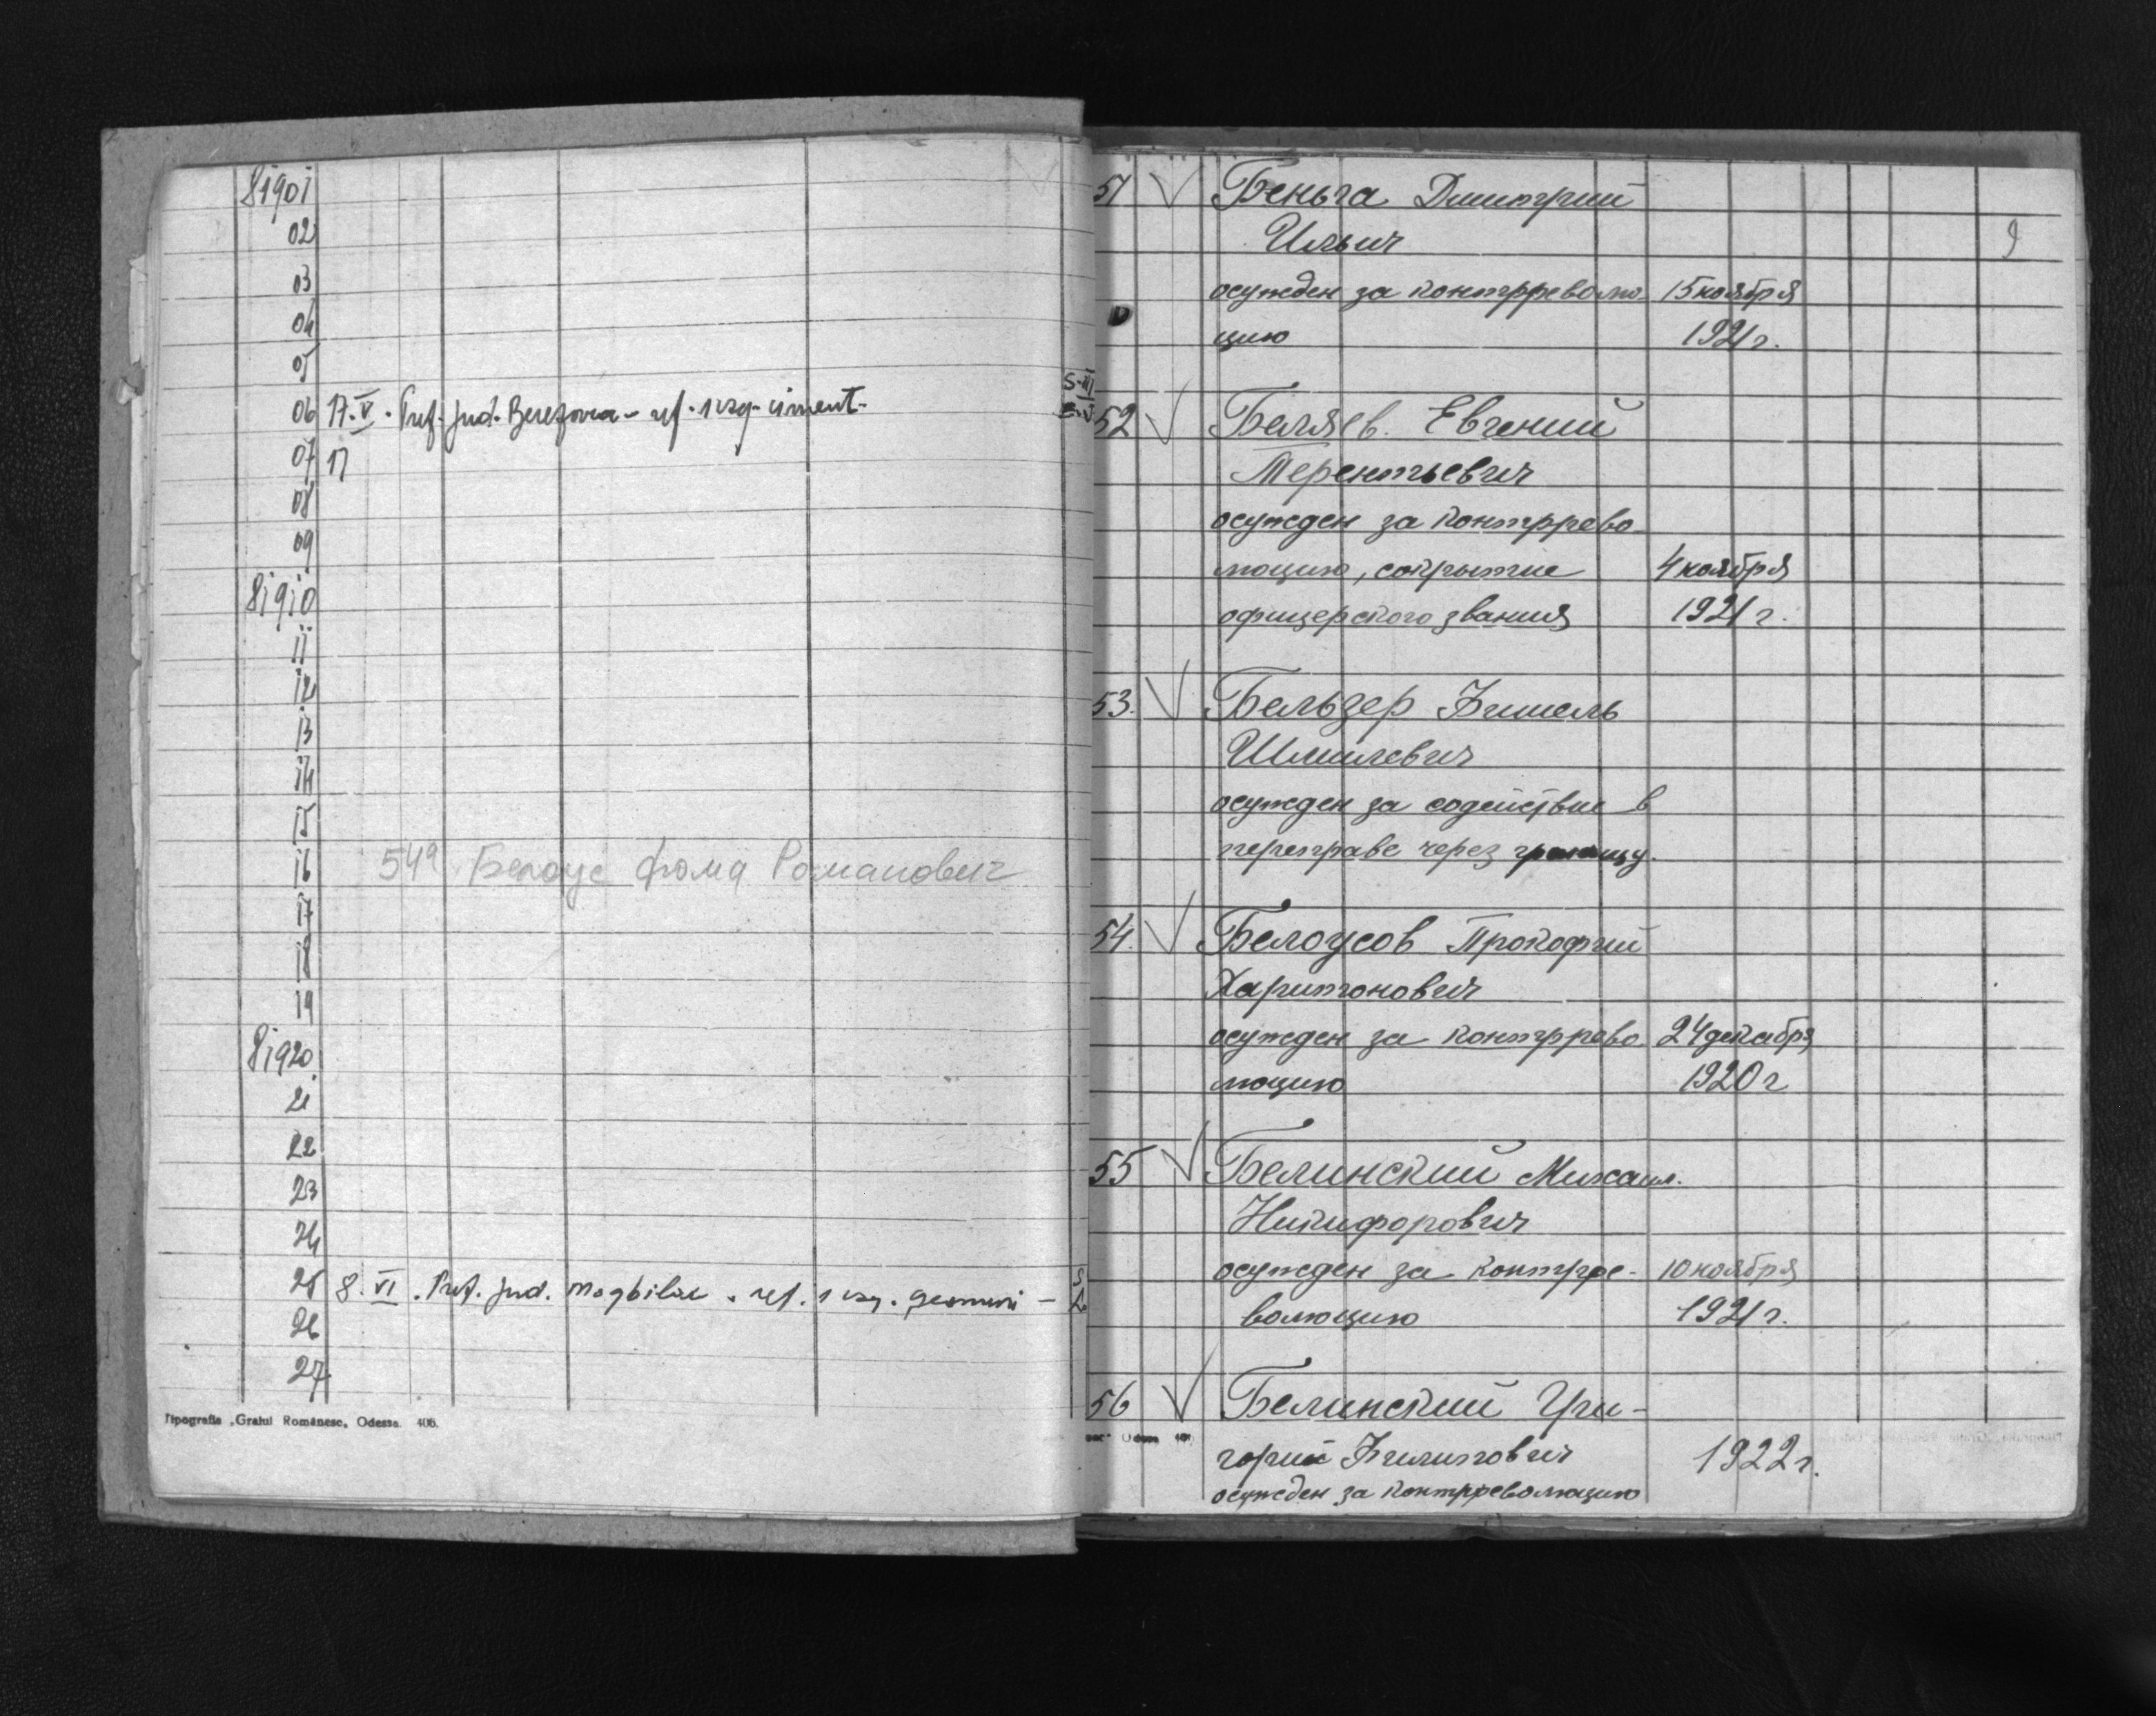 81901
02
03
04
05
06 17.V. Pref. Jud. Berezovca - ref. 1 vag. ciment.
07 17
08
09
81910
11
12
13
14
15
16 54а Белоус Фома Романович
17
18
19
81920
21
22
23
24
25 8.VI. Pref. Jud. Moghilău. ref. 1 vag. geamuri -
26
27
Tipografia „Graiul Românesc„ Odessa. 406.
9
51 V Беньга Дмитрий
Ильич
осужден за контрреволю 15 ноября
цию 1921 г.
52 V Беляев Евгений
Терентьевич
осужден за контррево
люцию, сокрытие 4 ноября
офицерского звания 1921 г.
53. V Бельзер Фишель
Шмилевич
осужден за содействие в
переправе через границу.
54. V Белоусов Прокофий
Харитонович
осужден за контррево 24 декабря
люцию 1920 г
55 V Белинский Михаил.
Никифорович
осужден за контрре- 10 ноября
волюцию 1921 г.
56 V Белинский Гри-
горий Филипович 1922 г.
осужден за контрреволюцию